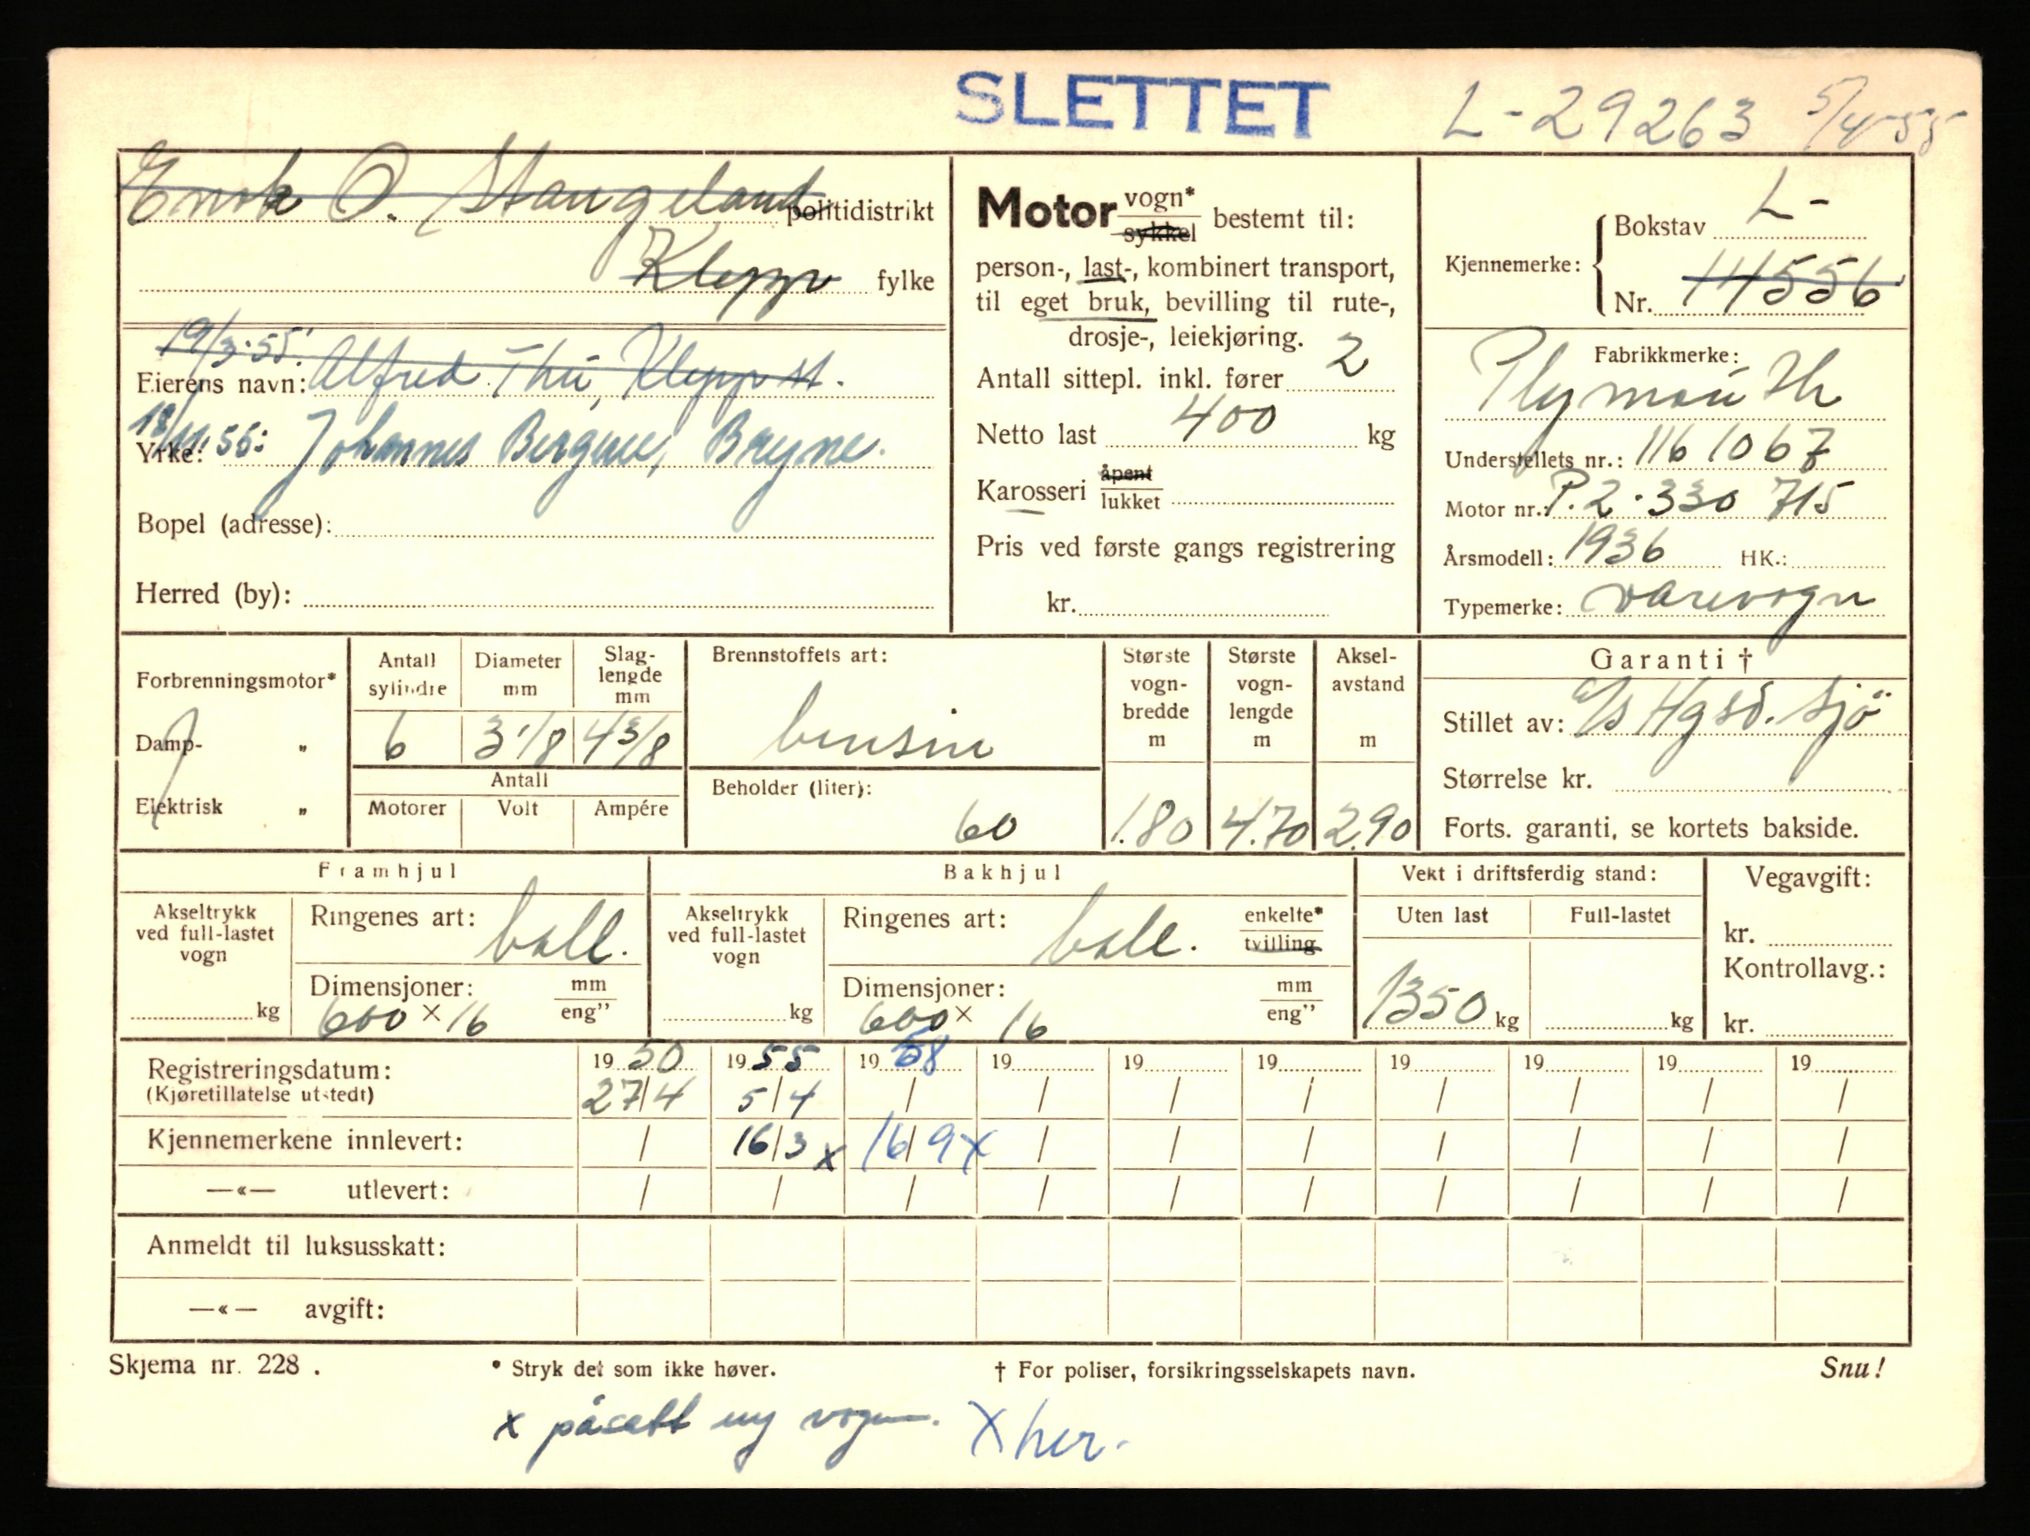 SLETTET L-29263 5/4-55
Enok O. Stangeland politidistrikt
Klepp fylke
19/3-55: Eierens navn: Alfred Thu, Klepp st.
Yrke: 55: Johannes Bergene, Bryne.
Bopel (adresse):
Herred (by):
Motor vogn* sykkel bestemt til:
person-, last-, kombinert transport,
til eget bruk, bevilling til rute-,
drosje-, leiekjøring.
Antall sittepl. inkl. fører 2
Netto last 400 kg
Karosseri åpent lukket
Pris ved første gangs registrering
kr.
Kjennemerke: Bokstav L-
Nr. 14556
Fabrikkmerke:
Plymouth
Understellets nr.: 1161067
Motor nr.: P.2.330 715
Årsmodell: 1936 HK.:
Typemerke: varevogn
Forbrenningsmotor*
Damp- „
Elektrisk „
Antall sylindre Diameter mm Slag-lengde mm
6 3 1/8 4 3/8
Antall
Motorer Volt Ampére
Brennstoffets art:
bensin
Beholder (liter):
60
Største vogn-bredde m 1.80
Største vogn-lengde m 4.70
Aksel-avstand m 2.90
Garanti †
Stillet av: a/s Hgsd. Sjö
Størrelse kr.
Forts. garanti, se kortets bakside.
Framhjul
Akseltrykk ved full-lastet vogn kg
Ringenes art: ball.
Dimensjoner: mm eng”
600 × 16
Bakhjul
Akseltrykk ved full-lastet vogn kg
Ringenes art: ball. enkelte* tvilling
Dimensjoner: mm eng”
600 × 16
Vekt i driftsferdig stand:
Uten last Full-lastet
1350 kg kg
Vegavgift:
kr.
Kontrollavg.:
kr.
Registreringsdatum: 19 50 19 55 19 58 19 19 19 19 19 19 19
(Kjøretillatelse utstedt) 27/4 5/4 / / / / / / / /
Kjennemerkene innlevert: / 16/3 x 16/9 x / / / / / / /
—«— utlevert: / / / / / / / / / /
Anmeldt til luksusskatt:
—«— avgift:
Skjema nr. 228 . * Stryk det som ikke høver. † For poliser, forsikringsselskapets navn. Snu!
x påsatt ny vogn. X her.